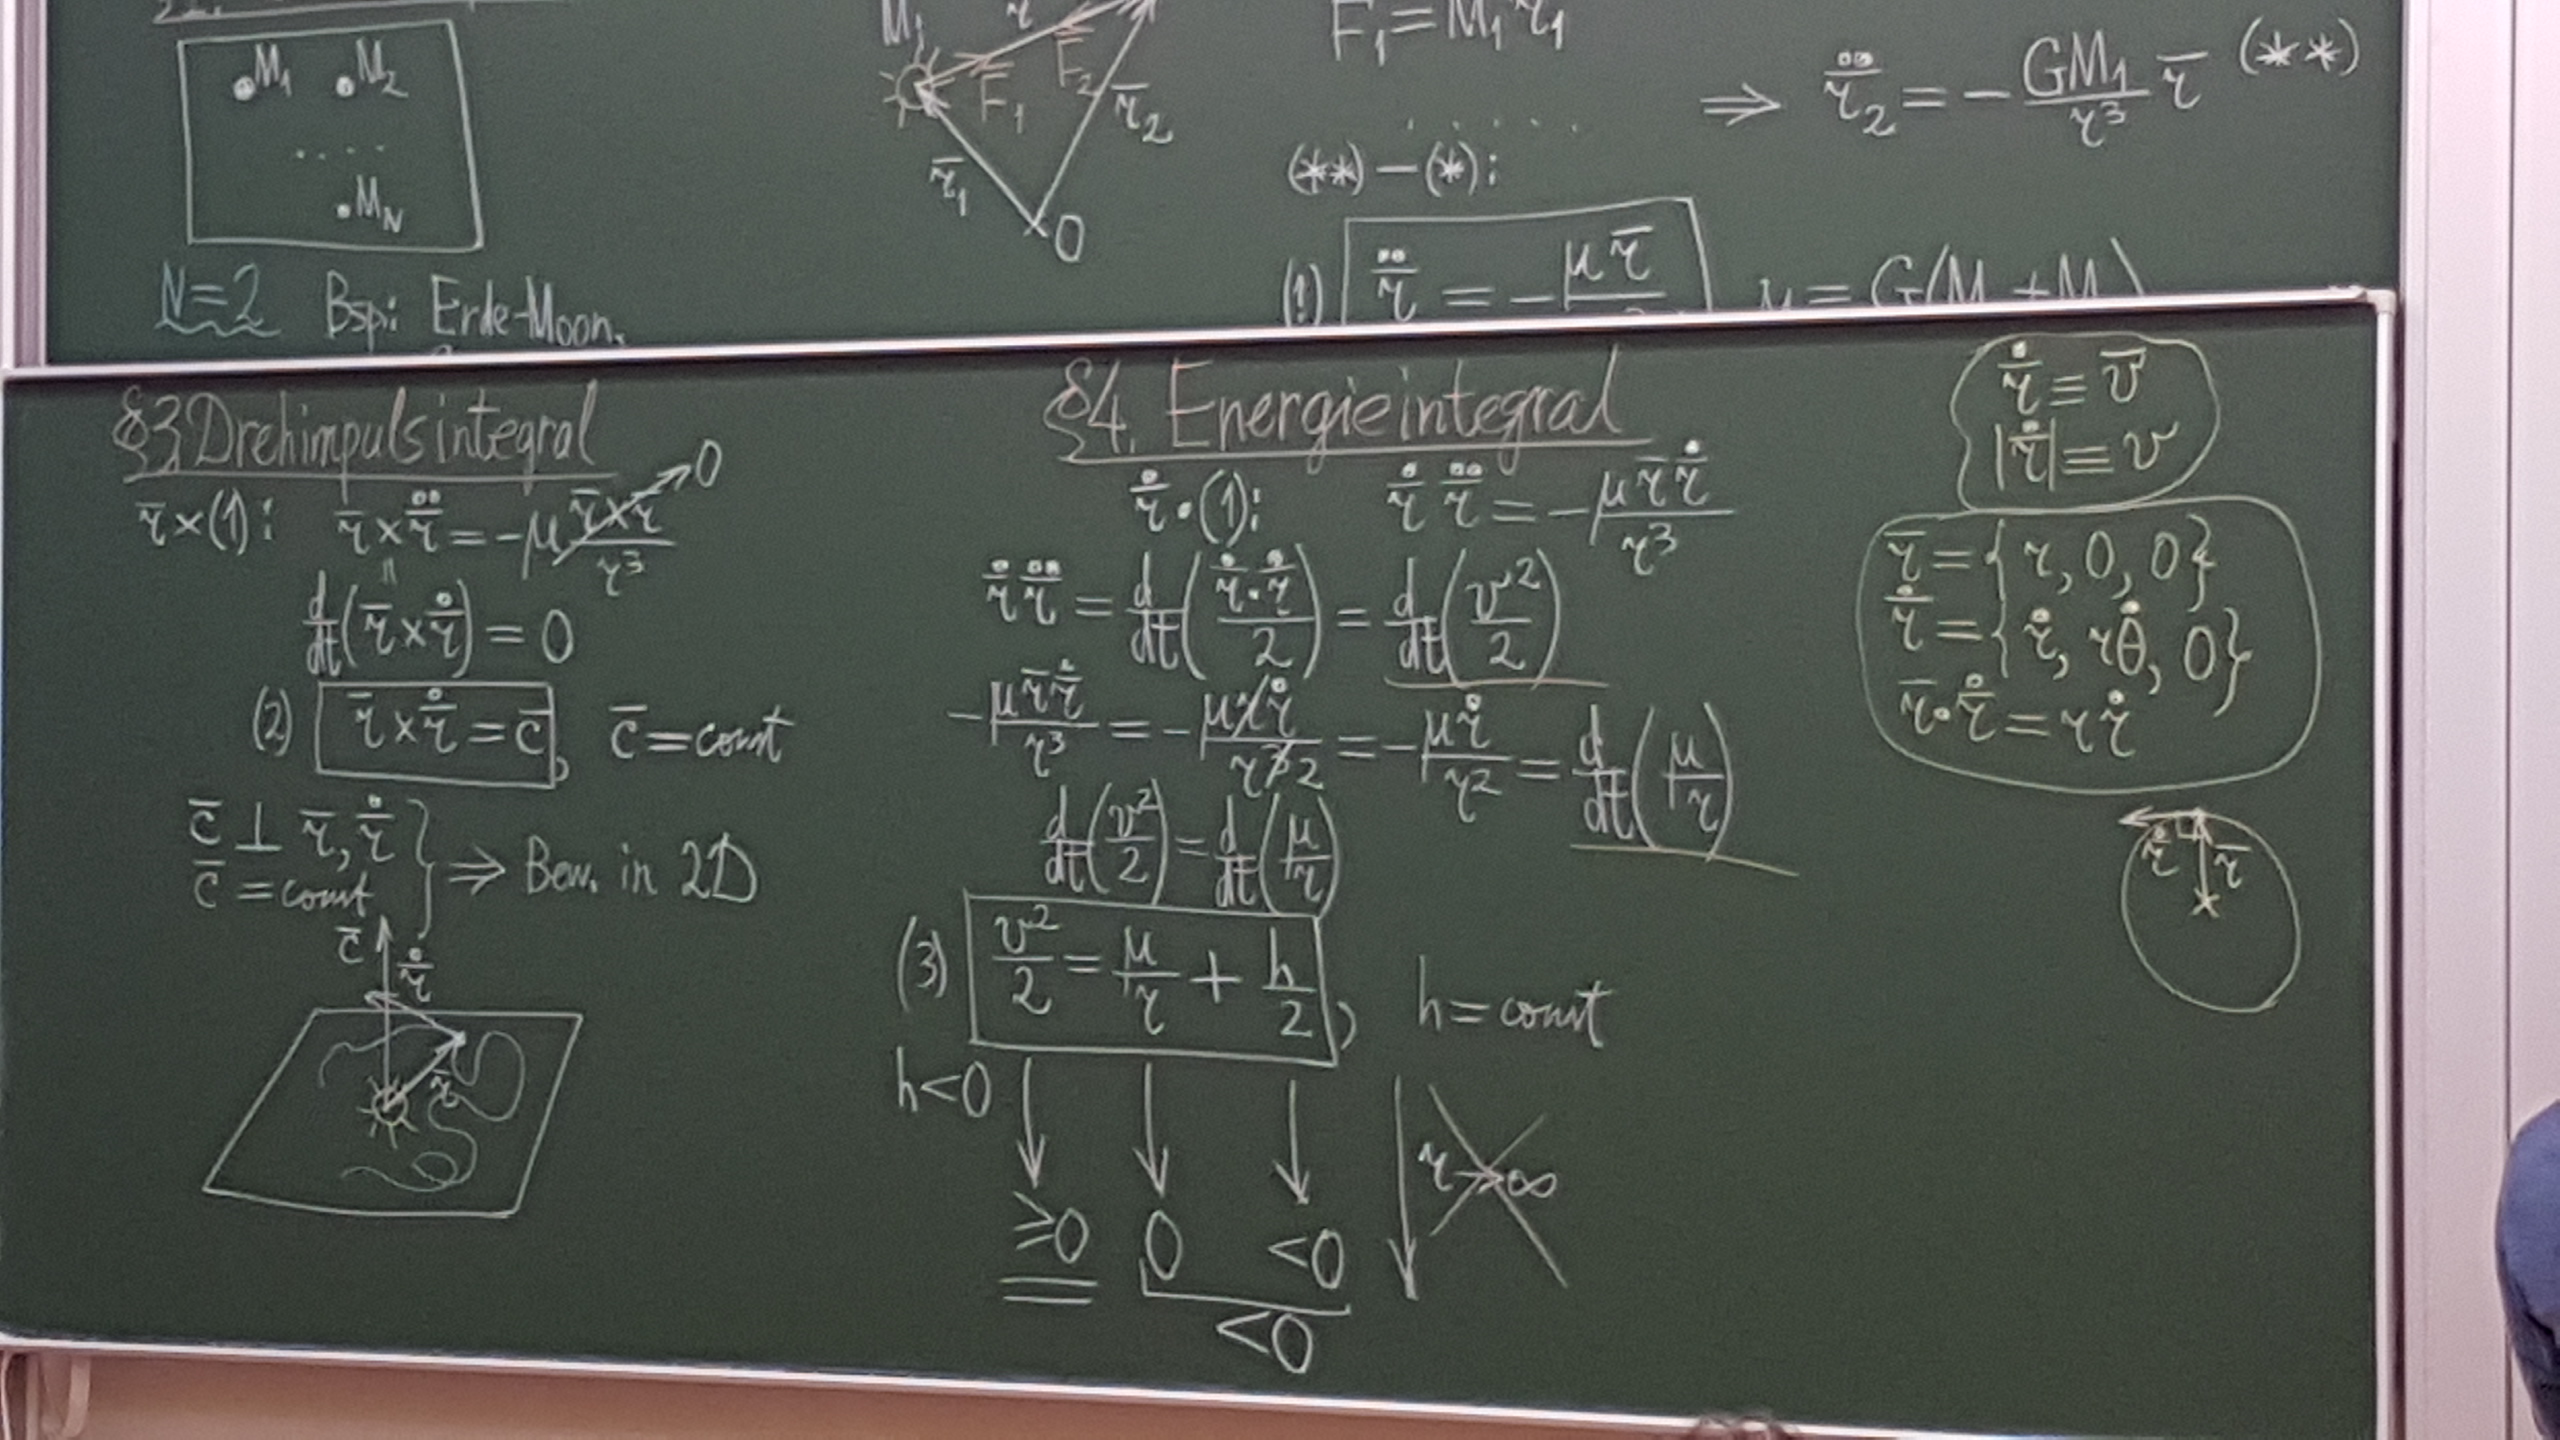 M₁ M₂
. . . .
M_N
N=2 Bsp: Erde-Moon.
M₁ r̄
F̄₁ F̄₂
r̄₁ r̄₂
O
F̄₁ = M₁ r̄̈₁
. . . . .
⇒ r̄̈₂ = − GM₁/r³ r̄ (**)
(**) − (*):
(1) r̄̈ = − μ r̄
§3 Drehimpulsintegral
r̄ × (1): r̄ × r̄̈ = −μ (r̄ × r̄)/r³ → 0
॥
d/dt (r̄ × r̄̇) = 0
(2) r̄ × r̄̇ = c̄, c̄ = const
c̄ ⊥ r̄, r̄̇
c̄ = const } ⇒ Bew. in 2D
c̄ r̄̇
r̄
§4. Energieintegral
r̄̇ · (1): r̄̇ r̄̈ = − μ r̄ r̄̇/r³
r̄̇ r̄̈ = d/dt (r̄̇ · r̄̇/2) = d/dt (v²/2)
− μ r̄ r̄̇/r³ = − μ r ṙ/r³ 2 = − μ ṙ/r² = d/dt (μ/r)
d/dt (v²/2) = d/dt (μ/r)
(3) v²/2 = μ/r + h/2, h = const
h<0 r→∞
≥0 0 <0
<0
r̄̇ ≡ v̄
|r̄̇| ≡ v
r̄ = {r, 0, 0}
r̄̇ = {ṙ, rθ̇, 0}
r̄ · r̄̇ = r ṙ
r̄̇ r̄